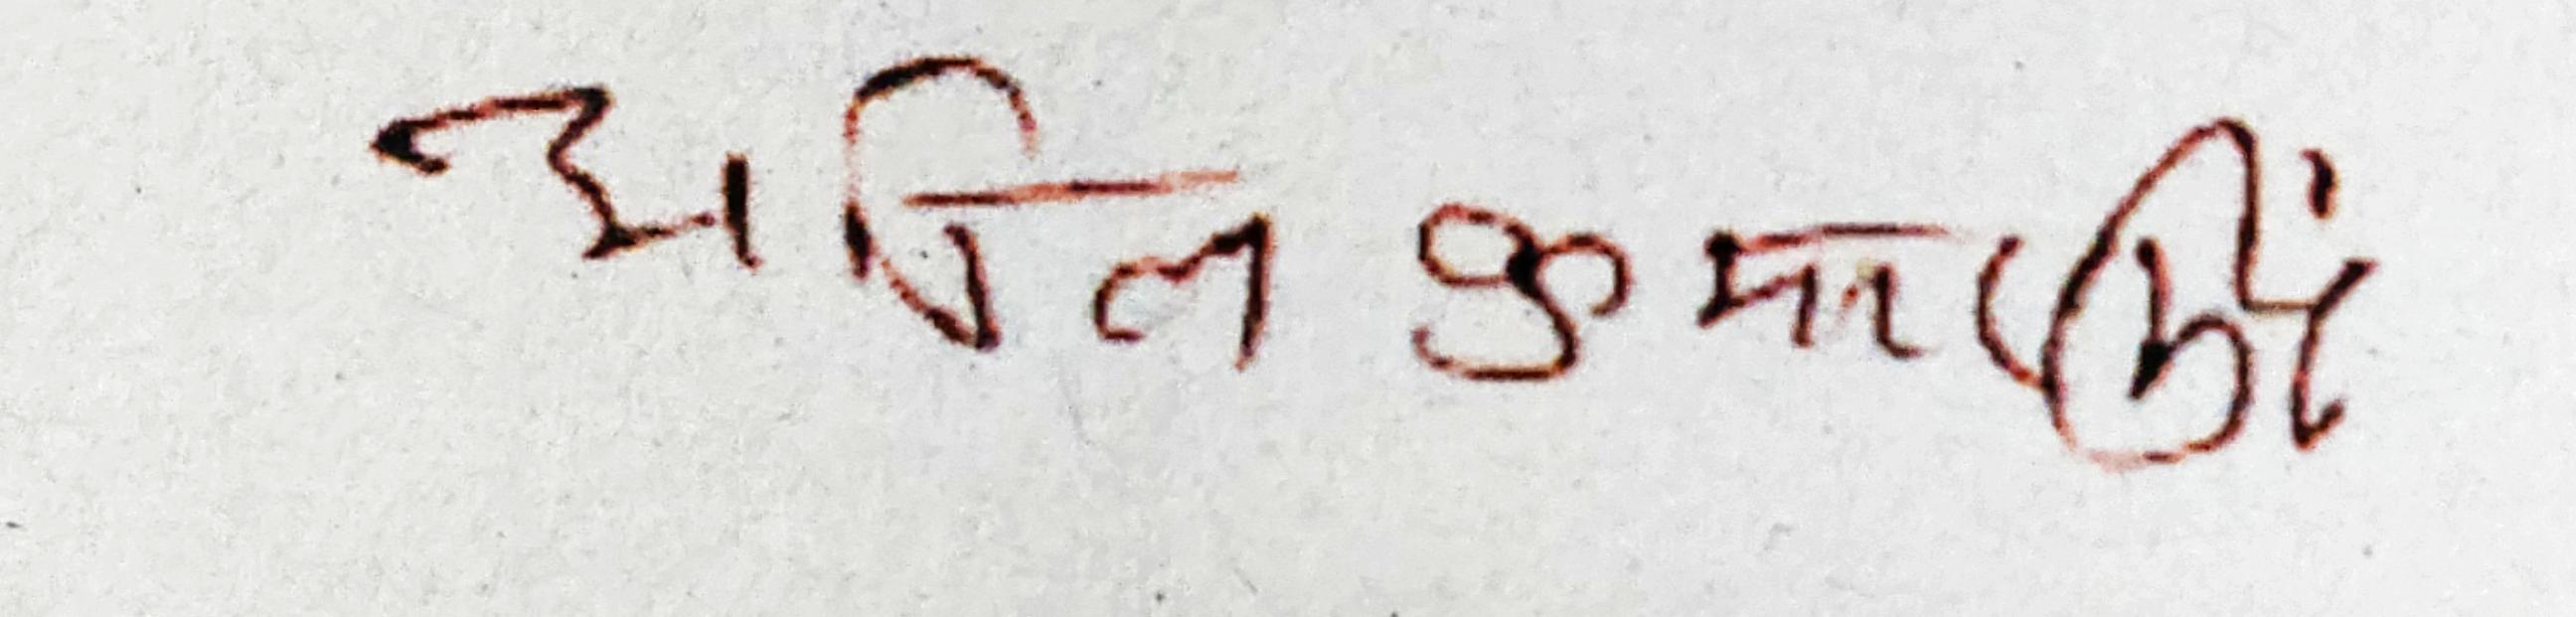 अनिल कुमार सिंह